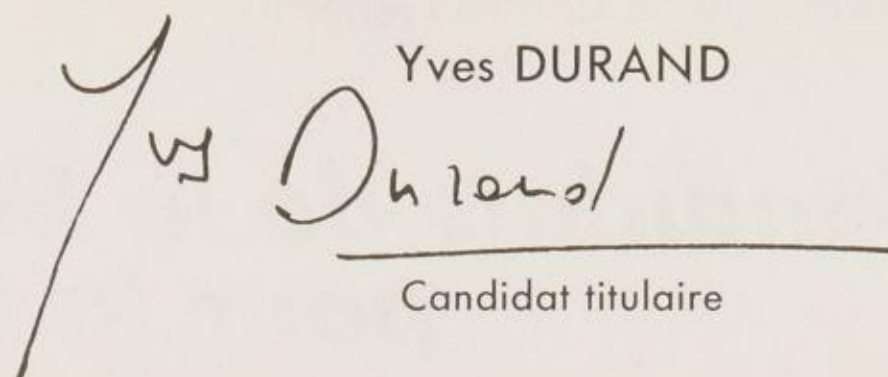 Yves DURAND
Yves Durand
Candidat titulaire